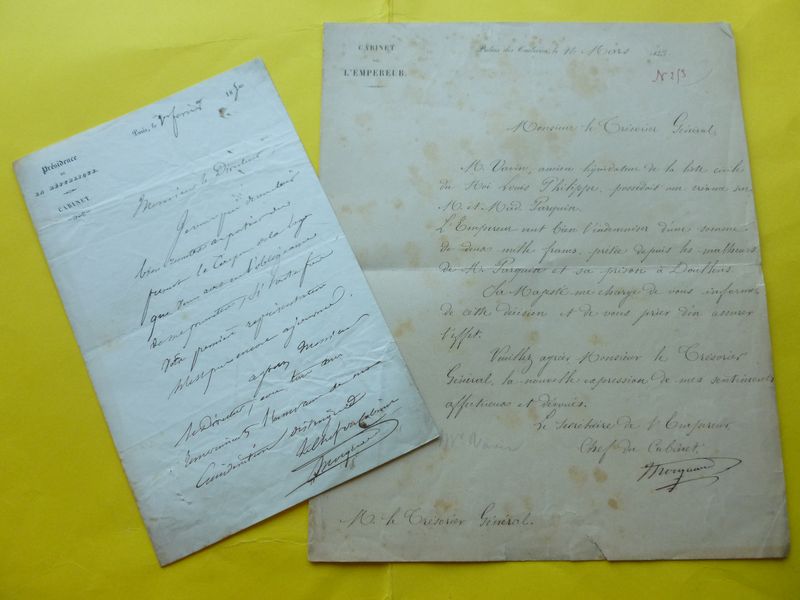 Présidence
DE
LA RÉPUBLIQUE
CABINET
Paris, le février 185
Monsieur le Directeur
bien remettre au porteur du
présent le Coupon de la loge
que vous avez eu l'obligeance
de me promettre, si toutefois
votre première représentation
n'est pas encore ajournée.
Agréez Monsieur
le Directeur, avec tous mes
Considération distinguée
Le Chef du Cabinet
Mocquard
CABINET
DE
L'EMPEREUR.
Palais des Tuileries, le 16 Mars 1853
N 213
Monsieur le Trésorier Général,
M. Vavin, ancien liquidateur de la liste civile
du Roi Louis Philippe, possédait une créance sur
M. et Mad. Parquin.
L'Empereur veut bien l'indemniser d'une somme
de deux mille francs, prêtée depuis les malheurs
de Mr Parquin et sa prison à Doullens.
Sa Majesté me charge de vous informer
de cette décision et de vous prier d'en assurer
l'effet.
Veuillez agréer Monsieur le Trésorier
Général, la nouvelle expression de mes sentiments
affectueux et dévoués.
Le Secrétaire de l'Empereur,
Chef du Cabinet.
Mocquard
Mr Vavin
M. le Trésorier Général.